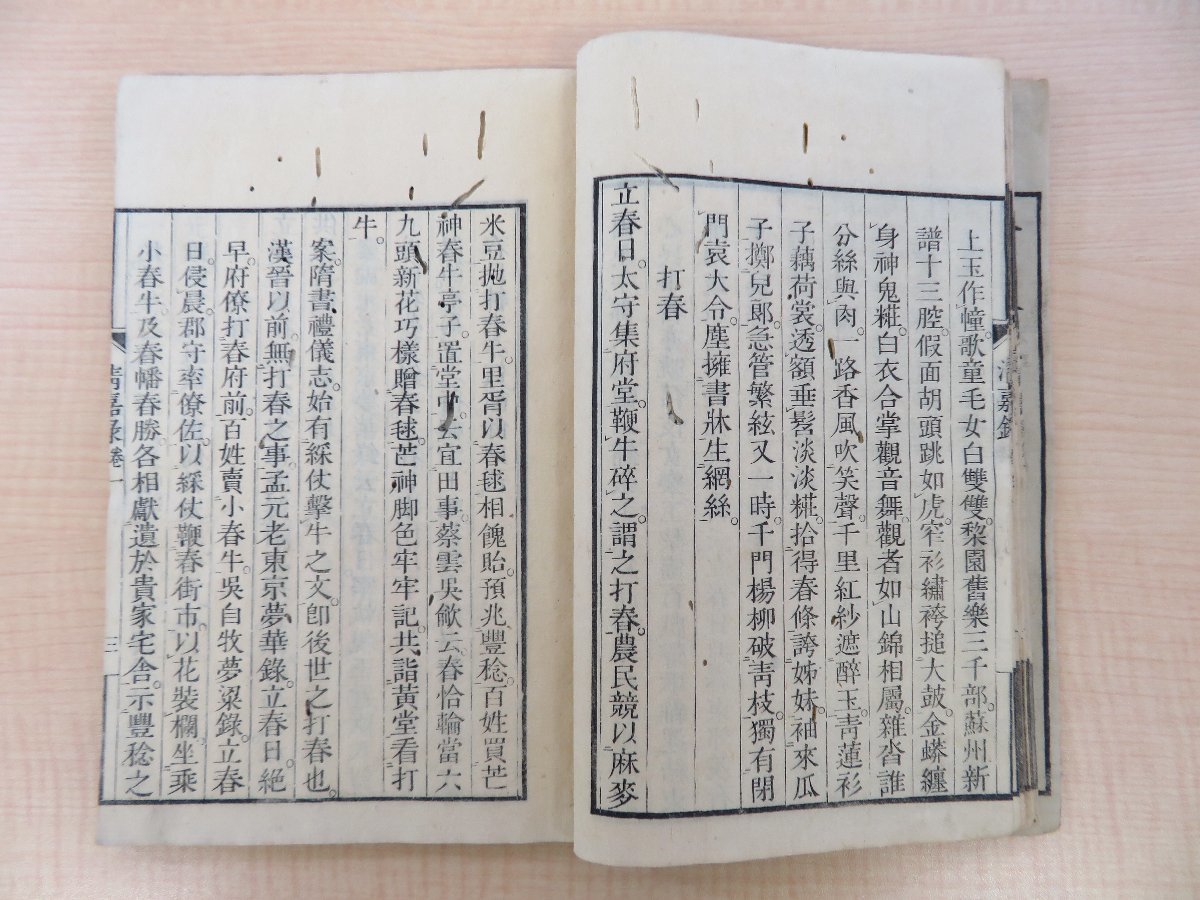 上玉作幢。歌童毛女白雙雙。棃園舊樂三千部。蘇州新
譜十三腔。假面胡頭跳如虎。窄衫繡袴搥大鼓。金蟒纏
身神鬼粧。白衣合掌觀音舞。觀者如山錦相屬。雜沓誰
分絲與肉。一路香風吹笑聲。千里紅紗遮醉玉。青蓮衫
子藕荷裳。透額垂髫淡淡粧。拾得春條誇姊妹。袖來瓜
子擲兒郎。急管繁絃又一時。千門楊柳破青枝。獨有閉
門袁大令。塵擁書牀生網絲。
打春
立春日。太守集府堂。鞭牛碎之。謂之打春。農民競以麻麥
米豆拋打春牛。里胥以春毬相餽貽。預兆豐稔。百姓買芒
神春牛亭子。置堂中。云宜田事。蔡雲吳歈云。春恰輪當六
九頭。新花巧樣贈春毬。芒神脚色牢牢記。共詣黃堂看打
牛。
案。隋書禮儀志。始有綵仗擊牛之文。卽後世之打春也。
漢晉以前。無打春之事。孟元老東京夢華錄。立春日。絕
早。府僚打春府前。百姓賣小春牛。吳自牧夢粱錄。立春
日。侵晨。郡守率僚佐。以綵仗鞭春街市。以花裝欄。坐乘
小春牛。及春幡春勝。各相獻遺於貴家宅舍。示豐稔之
清嘉錄卷一
三
清嘉錄